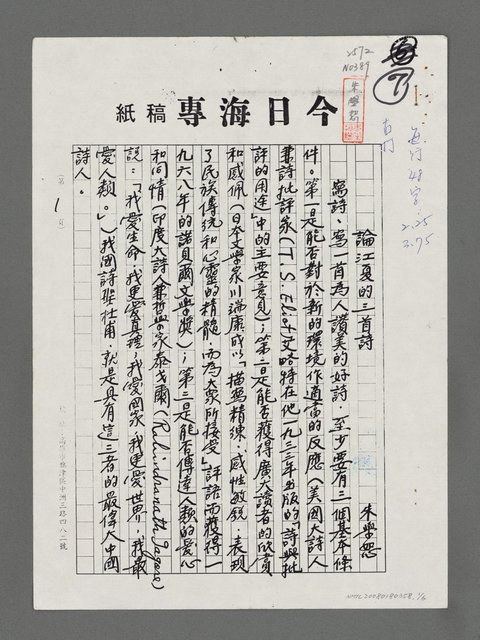 2572
N0389
⑦
朱學恕
今日海專稿紙
論江夏的三首詩
朱學恕
寫詩,寫一首為人讚美的好詩,至少要有三個基本條
件。第一是能否對於新的環境作適當的反應(美國大詩人
兼詩批評家(T.S.Eliot艾略特在他一九三三年出版的「詩與批
評的用途」中的主要意見);第二是能否獲得廣大讀者的欣賞
和感佩(日本文學家川端康成以「描寫精湅,感性敏銳,表現
了民族傳統和心靈的精髓,而為大眾所接受」評語而獲得一
九六八年的諾貝爾文學獎);第三是能否傳達人類的愛心
和同情(印度大詩人兼哲學家泰戈爾(Rabindranatt Tagore)
說:「我愛生命,我更愛真理;我愛國家,我更愛世界,我最
愛人類。」)我國詩聖杜甫,就是具有這三者的最偉大中國
詩人。
(第 1 頁)
2.25
3.75
NMTL20080180358. 1/6